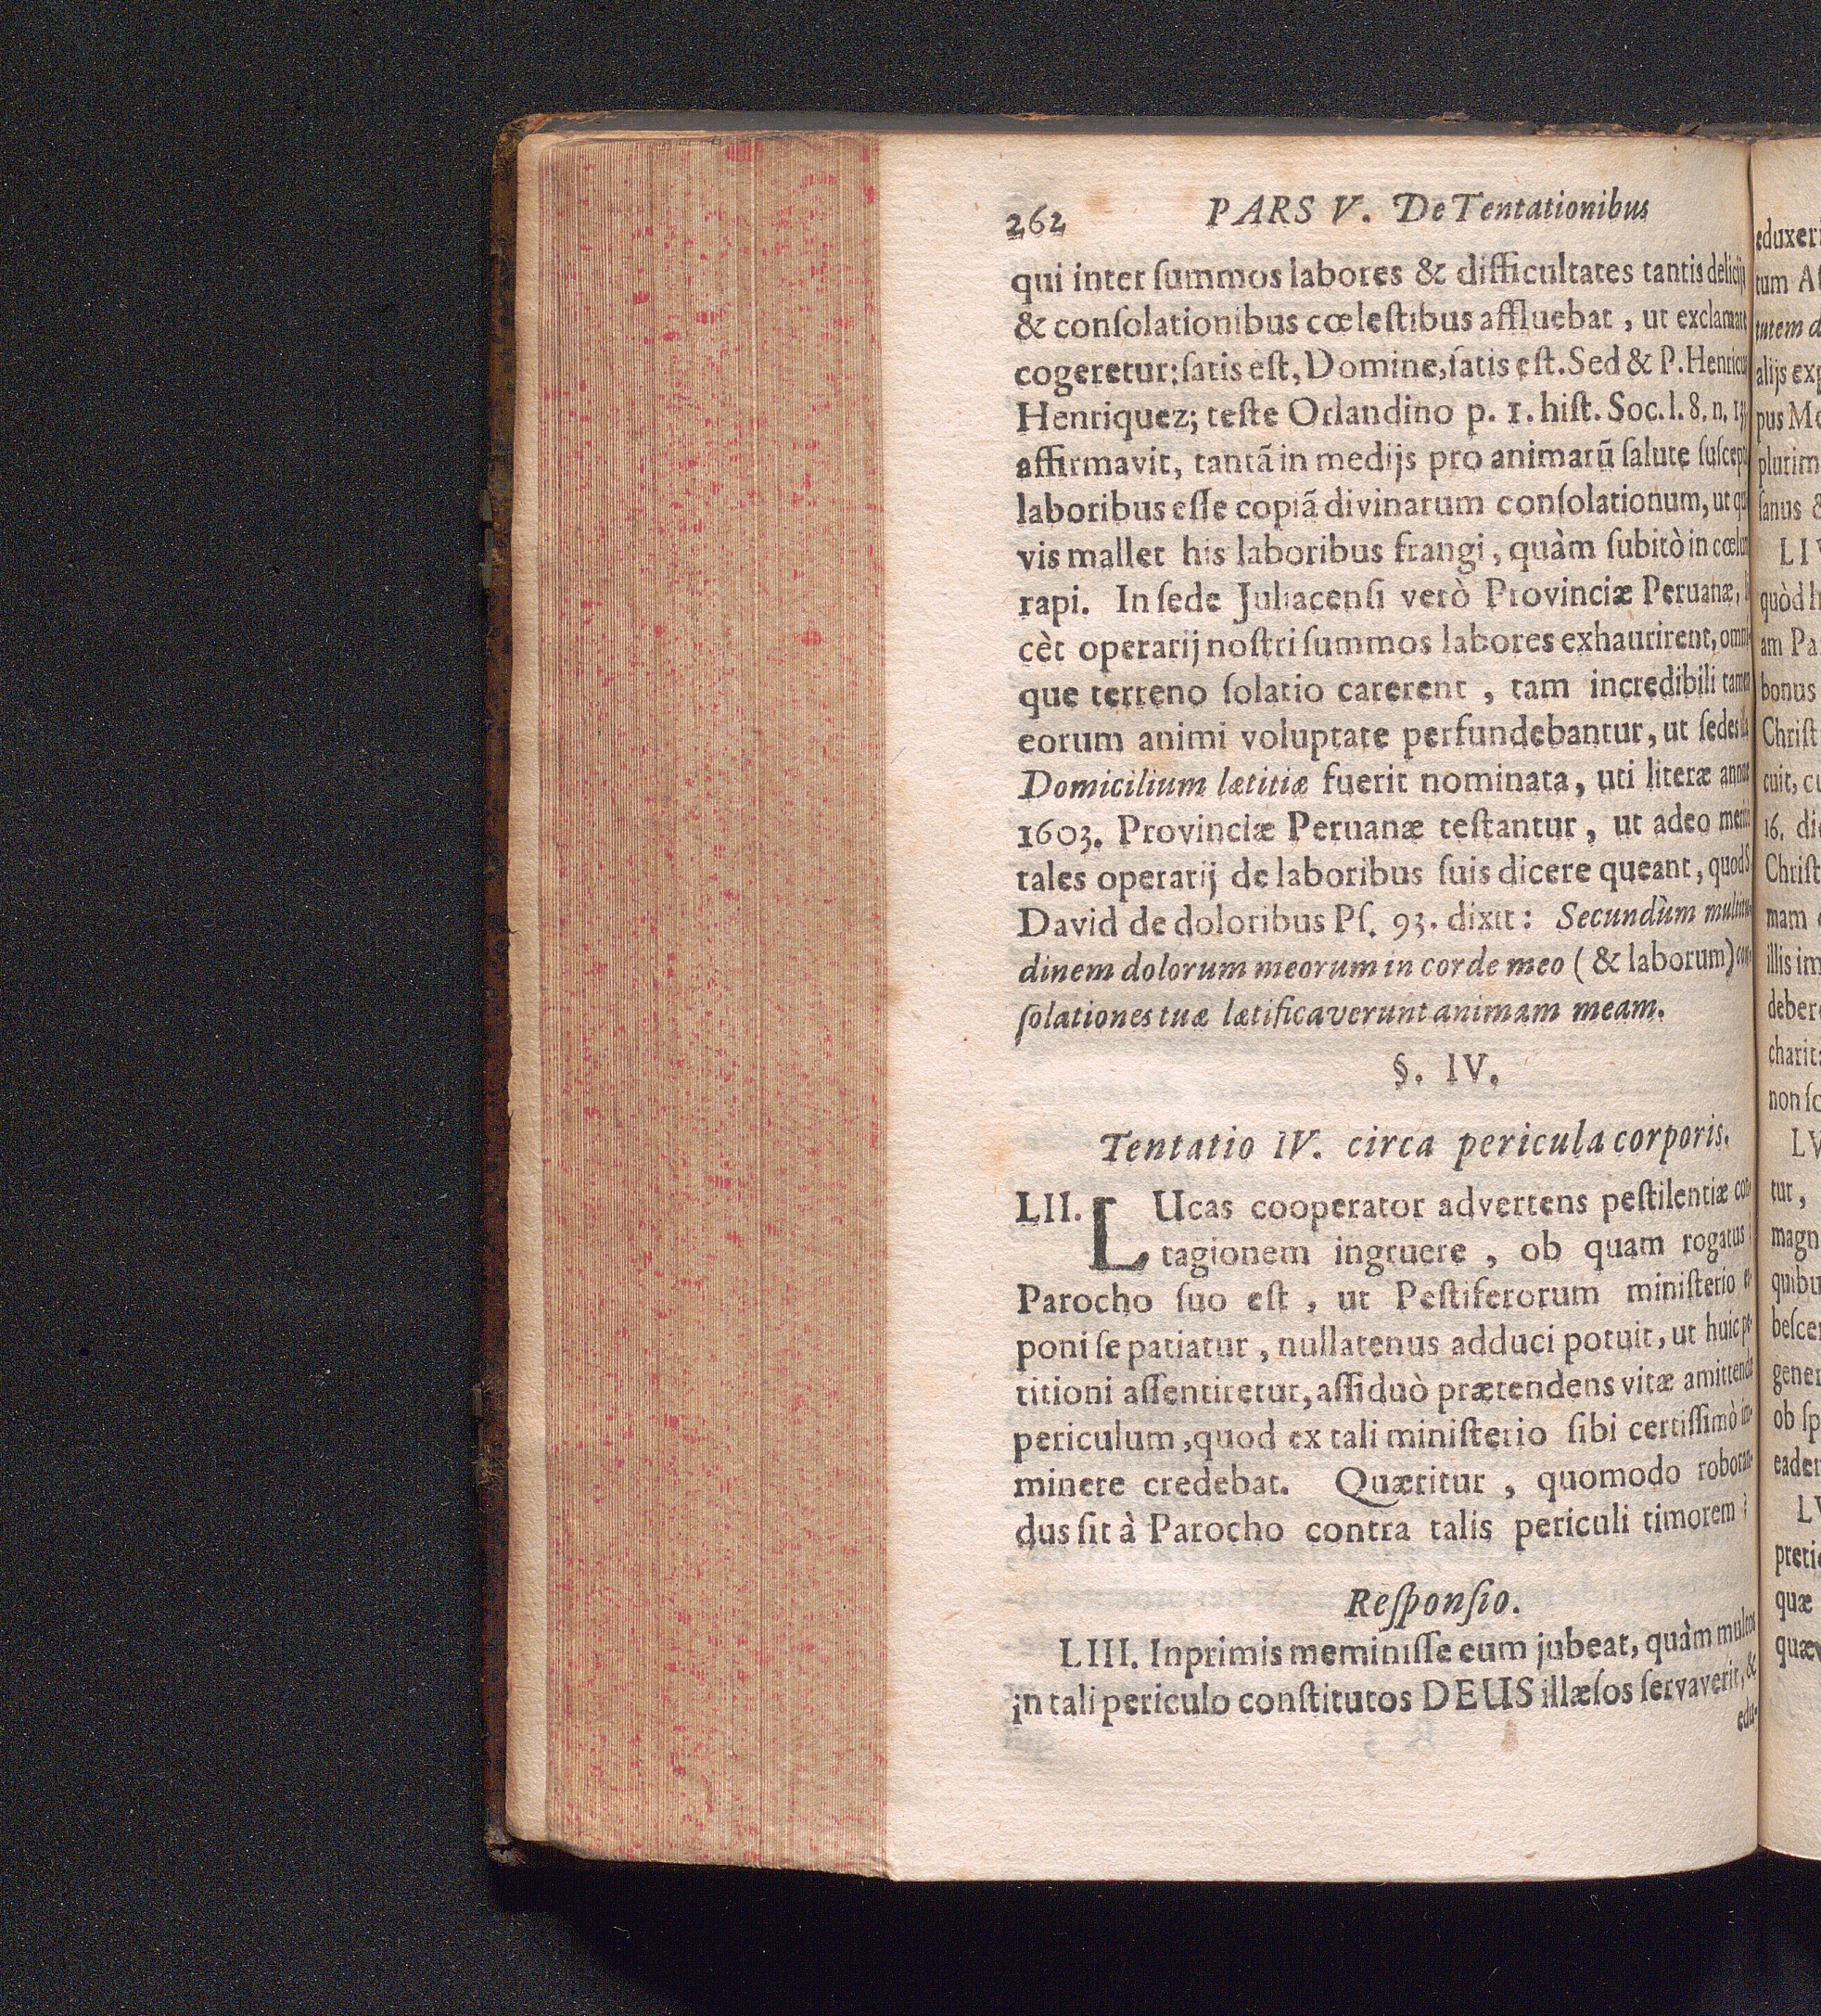 262 PARS V. De Tentationibus
qui inter ſummos labores & difficultates tantis delicijs
& conſolationibus cœleſtibus affluebat , ut exclamare
cogeretur; ſatis eſt, Domine, ſatis eſt. Sed & P. Henricus
Henriquez; teſte Orlandino p. 1. hiſt. Soc. l. 8. n.
affirmavit, tantã in medijs pro animarũ ſalute ſuſceptis
laboribus eſſe copiã divinarum conſolationum, ut qui
vis mallet his laboribus frangi , quàm ſubitò in cœlum
rapi. In ſede Juliacenſi verò Provinciæ Peruanæ, li
cèt operarij noſtri ſummos labores exhaurirent, omni
que terreno ſolatio carerent , tam incredibili tamen
eorum animi voluptate perfundebantur, ut ſedes illa
Domicilium lætitiæ fuerit nominata, uti literæ annuæ
1603. Provinciæ Peruanæ teſtantur , ut adeo meritò
tales operarij de laboribus ſuis dicere queant, quod S.
David de doloribus Pſ. 93. dixit: Secundùm multitu-
dinem dolorum meorum in corde meo ( & laborum) con-
ſolationes tuæ lætificaverunt animam meam.
§. IV.
Tentatio IV. circa pericula corporis.
LII. LUcas cooperator advertens peſtilentiæ con-
tagionem ingruere , ob quam rogatus
Parocho ſuo eſt , ut Peſtiferorum miniſterio ex-
poni ſe patiatur , nullatenus adduci potuit, ut huic pe-
titioni aſſentiretur, aſſiduò prætendens vitæ amittendæ
periculum, quod ex tali miniſterio ſibi certiſſimò im-
minere credebat. Quæritur , quomodo roboran-
dus ſit à Parocho contra talis periculi timorem ?
Reſponſio.
LIII. Inprimis meminiſſe eum jubeat, quàm multos
in tali periculo conſtitutos DEUS illæſos ſervaverit, &
edu-